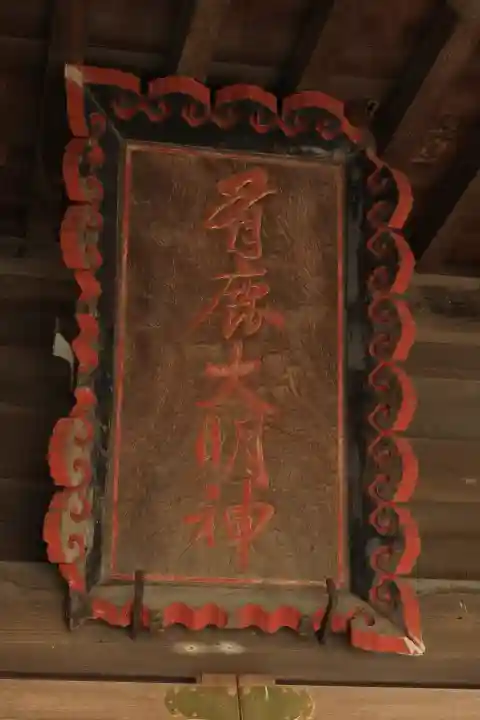 有鹿大明神